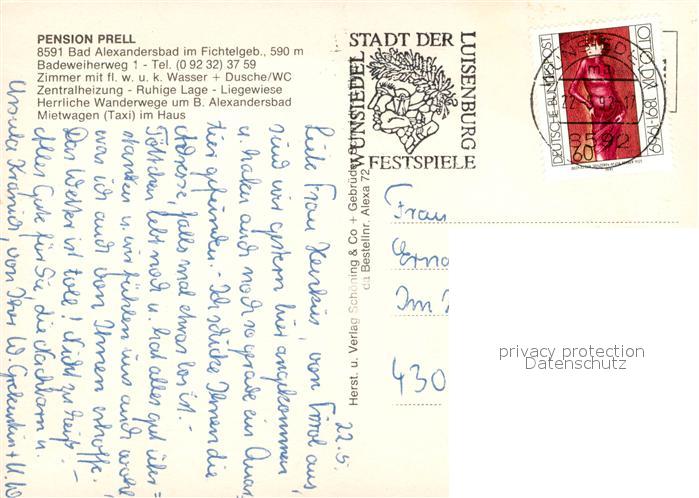 PENSION PRELL
8591 Bad Alexandersbad im Fichtelgeb., 590 m
Badeweiherweg 1 - Tel. (0 92 32) 37 59
Zimmer mit fl. w. u. k. Wasser + Dusche/WC
Zentralheizung - Ruhige Lage - Liegewiese
Herrliche Wanderwege um B. Alexandersbad
Mietwagen (Taxi) im Haus
22.5.
Liebe Frau Henkus, von Tirol aus,
sind wir gestern hier angekommen
u. haben auch noch so gerade ein Quar
tier gefunden. - Ich schicke Ihnen die
Adresse, falls mal etwas los ist. -
lebt noch u. hat alles gut über=
standen u. wir fühlen uns auch wohl
was ich auch von Ihnen erhoffe.
Das Wetter ist toll! Nicht zu heiß! -
Alles Gute für Sie, die Nachbarn u.
Ursula von Ihr W.
Herst. u. Verlag Schöning & Co + Gebrüder
da Bestellnr. Alexa 72
STADT DER
WUNSIEDEL
LUISENBURG
FESTSPIELE
DEUTSCHE BUNDESPOST
OTTO DIX 1891-1969
60
8592
Frau
Erna
Im
430
privacy protection
Datenschutz